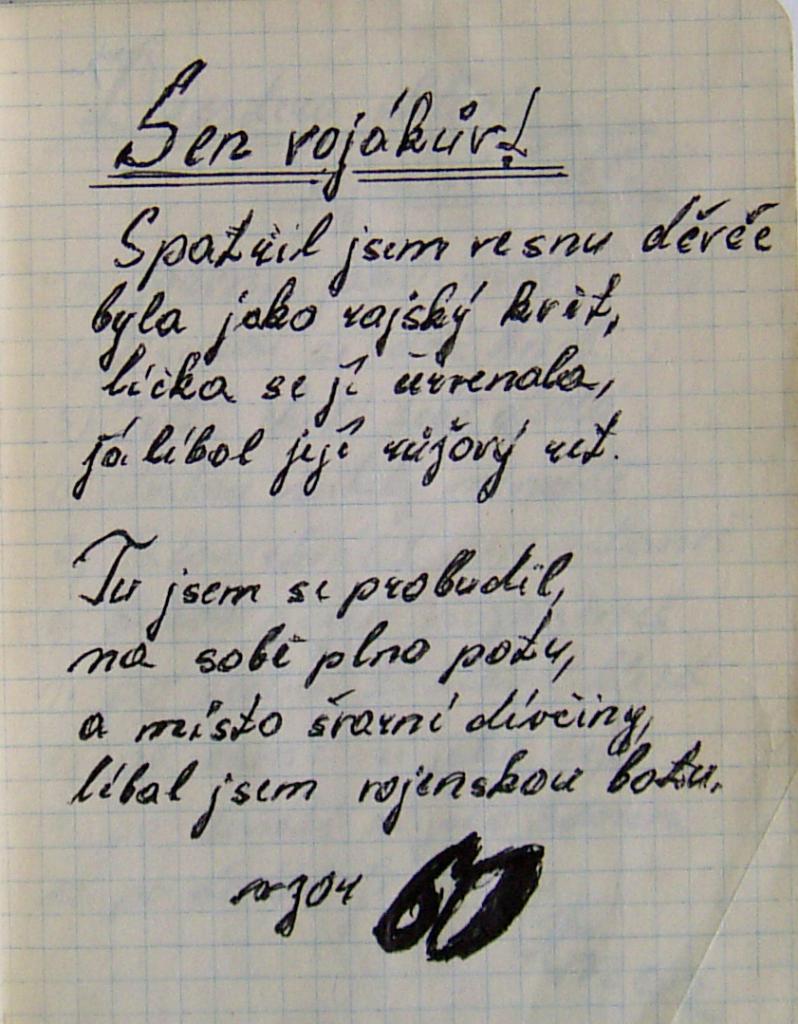 Sen vojákův!
Spatřil jsem ve snu děvče
byla jako rajský květ,
líčka se jí červenala,
já líbal její růžový ret.
Tu jsem se probudil,
na sobě plno potu,
a místo švarní dívčiny,
líbal jsem vojenskou botu.
vzor 60